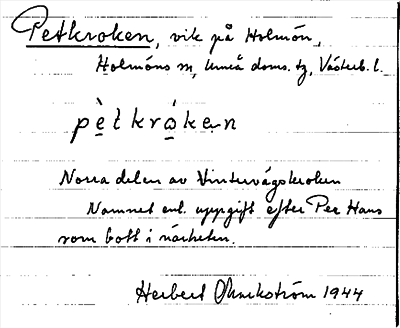 Petkroken, vik på Holmön,
Holmöns sn, Umeå doms. tg, Västerb. l.
pètkróken
Norra delen av Vintervågskroken
Namnet enl. uppgift efter Per Hans
som bott i närheten.
Herbert 1944